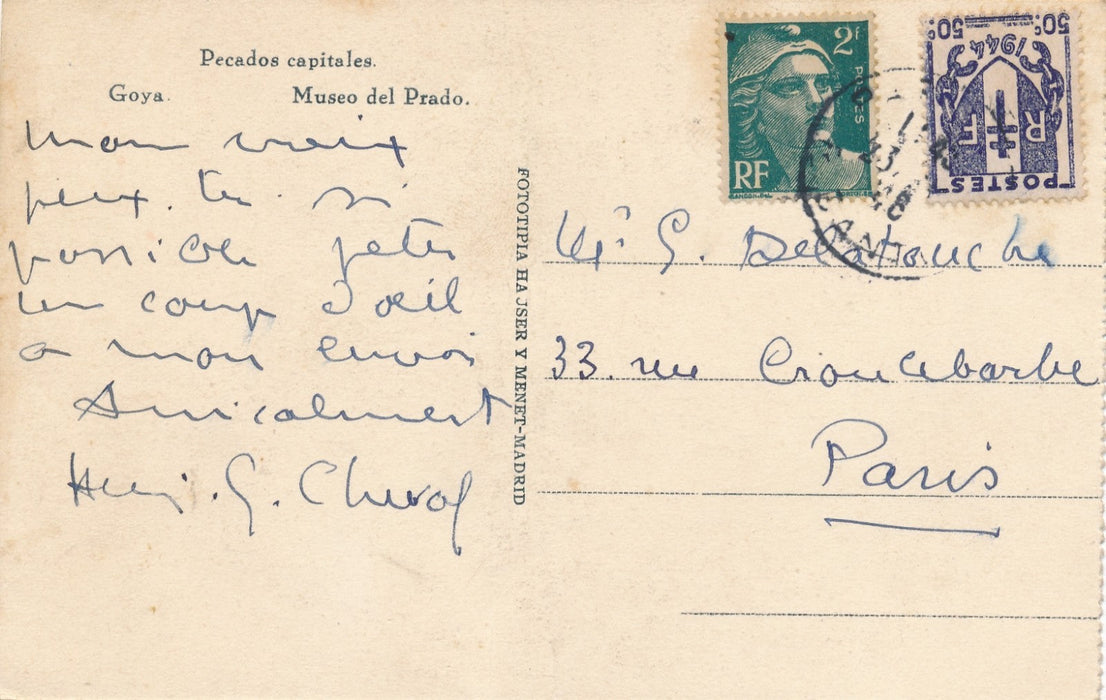 Pecados capitales.
Goya.
Museo del Prado.
mon vieux
peux-tu si
possible jeter
un coup d'oeil
a mon envoi
Amicalement
Henri. G. Cheval
FOTOTIPIA HAUSER Y MENET-MADRID
2f
POSTES
RF
50c 50c
1944
RF
POSTES
23.
48
Mr G. Delatouche
33. rue Croulebarbe
Paris